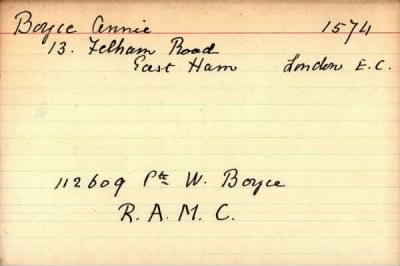 Boyce Annie 1574
13. Felham Road
East Ham London E.C.
112609 Pte W. Boyce
R.A.M.C.